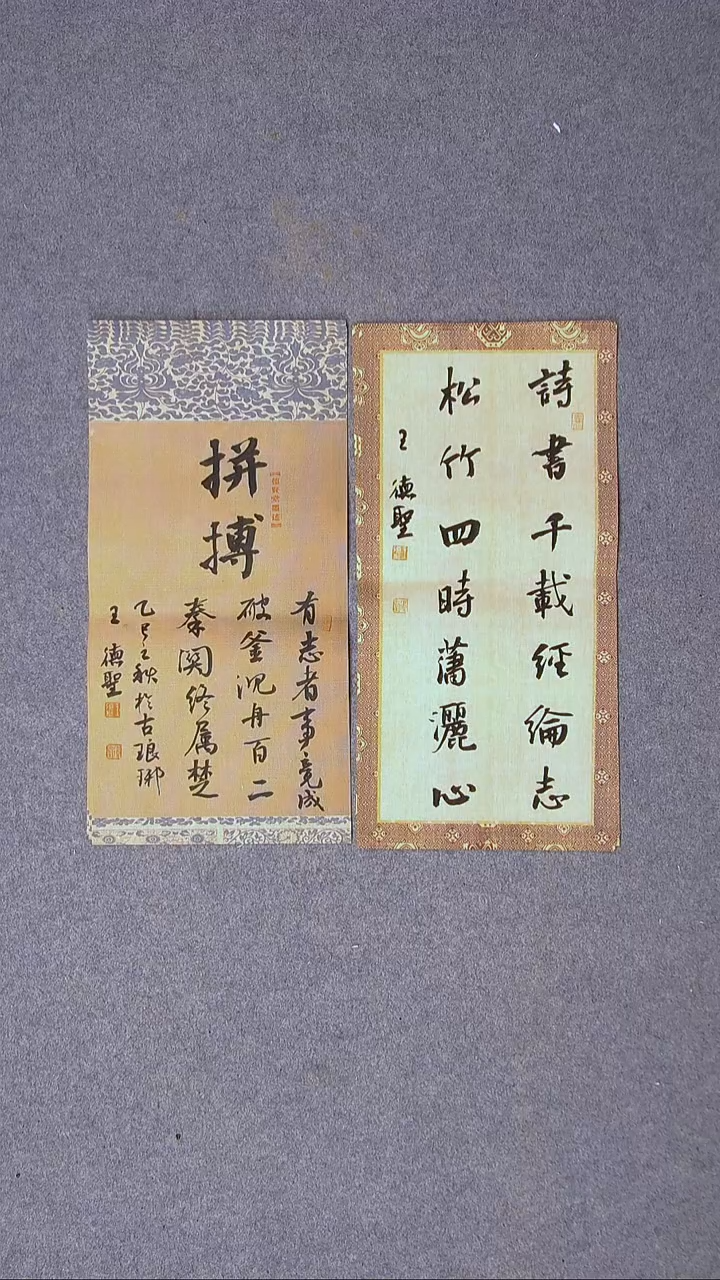 拼搏
有志者事竟成
破釜沉舟百二
秦関终属楚
乙巳之秋於古琅琊
王德聖
詩書千載經綸志
松竹四時蕭灑心
王德聖